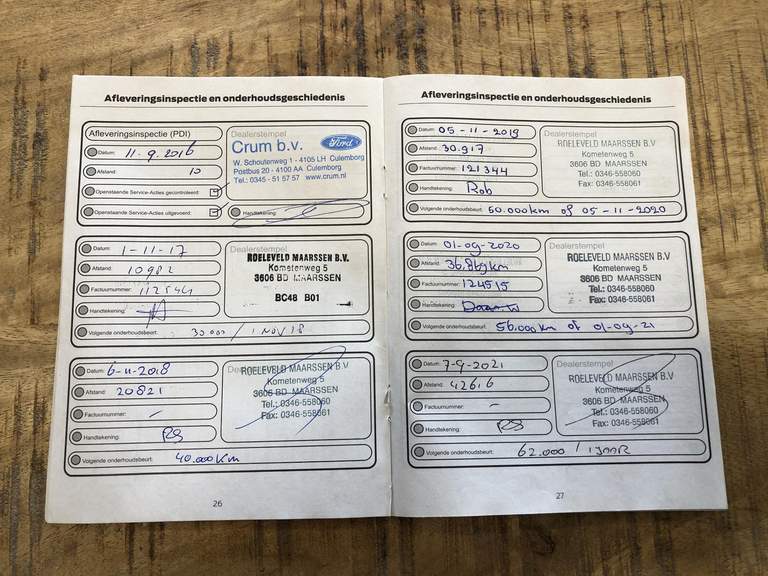 Afleveringsinspectie en onderhoudsgeschiedenis
Afleveringsinspectie (PDI)
Datum: 11-9.2016
Afstand: 10
Openstaande Service-Acties gecontroleerd:
Openstaande Service-Acties uitgevoerd:
Dealerstempel
Crum b.v. Ford
W. Schoutenweg 1 - 4105 LH Culemborg
Postbus 20 - 4100 AA Culemborg
Tel.: 0345 - 51 57 57 www.crum.nl
Handtekening:
Datum: 1-11-17
Afstand: 10982
Factuurnummer: 112544
Handtekening:
Volgende onderhoudsbeurt: 30000 / 1 NOV 18
Dealerstempel
ROELEVELD MAARSSEN B.V.
Kometenweg 5
3606 BD MAARSSEN
BC48 B01
Datum: 6-11-2018
Afstand: 20821
Factuurnummer: -
Handtekening: RS
Volgende onderhoudsbeurt: 40.000 Km
ROELEVELD MAARSSEN B.V
Kometenweg 5
3606 BD MAARSSEN
Tel.: 0346-558060
Fax: 0346-558061
26
Afleveringsinspectie en onderhoudsgeschiedenis
Datum: 05-11-2019
Afstand: 30.917
Factuurnummer: 121344
Handtekening: Rob
Volgende onderhoudsbeurt: 50.000km of 05-11-2020
Dealerstempel
ROELEVELD MAARSSEN B.V
Kometenweg 5
3606 BD MAARSSEN
Tel.: 0346-558060
Fax: 0346-558061
Datum: 01-09-2020
Afstand: 36.869km
Factuurnummer: 124515
Handtekening:
Volgende onderhoudsbeurt: 56.000km of 01-09-21
Dealerstempel
ROELEVELD MAARSSEN B.V
Kometenweg 5
3606 BD MAARSSEN
Tel.: 0346-558060
Fax: 0346-558061
Datum: 7-9-2021
Afstand: 42616
Factuurnummer: -
Handtekening: RS
Volgende onderhoudsbeurt: 62.000 / 1 JAAR
Dealerstempel
ROELEVELD MAARSSEN B.V
Kometenweg 5
3606 BD MAARSSEN
Tel.: 0346-558060
Fax: 0346-558061
27